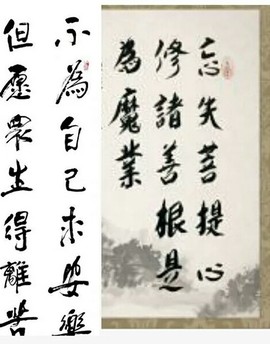 忘失菩提心
修諸善根是
為魔業
不為自己求安樂
但愿眾生得離苦